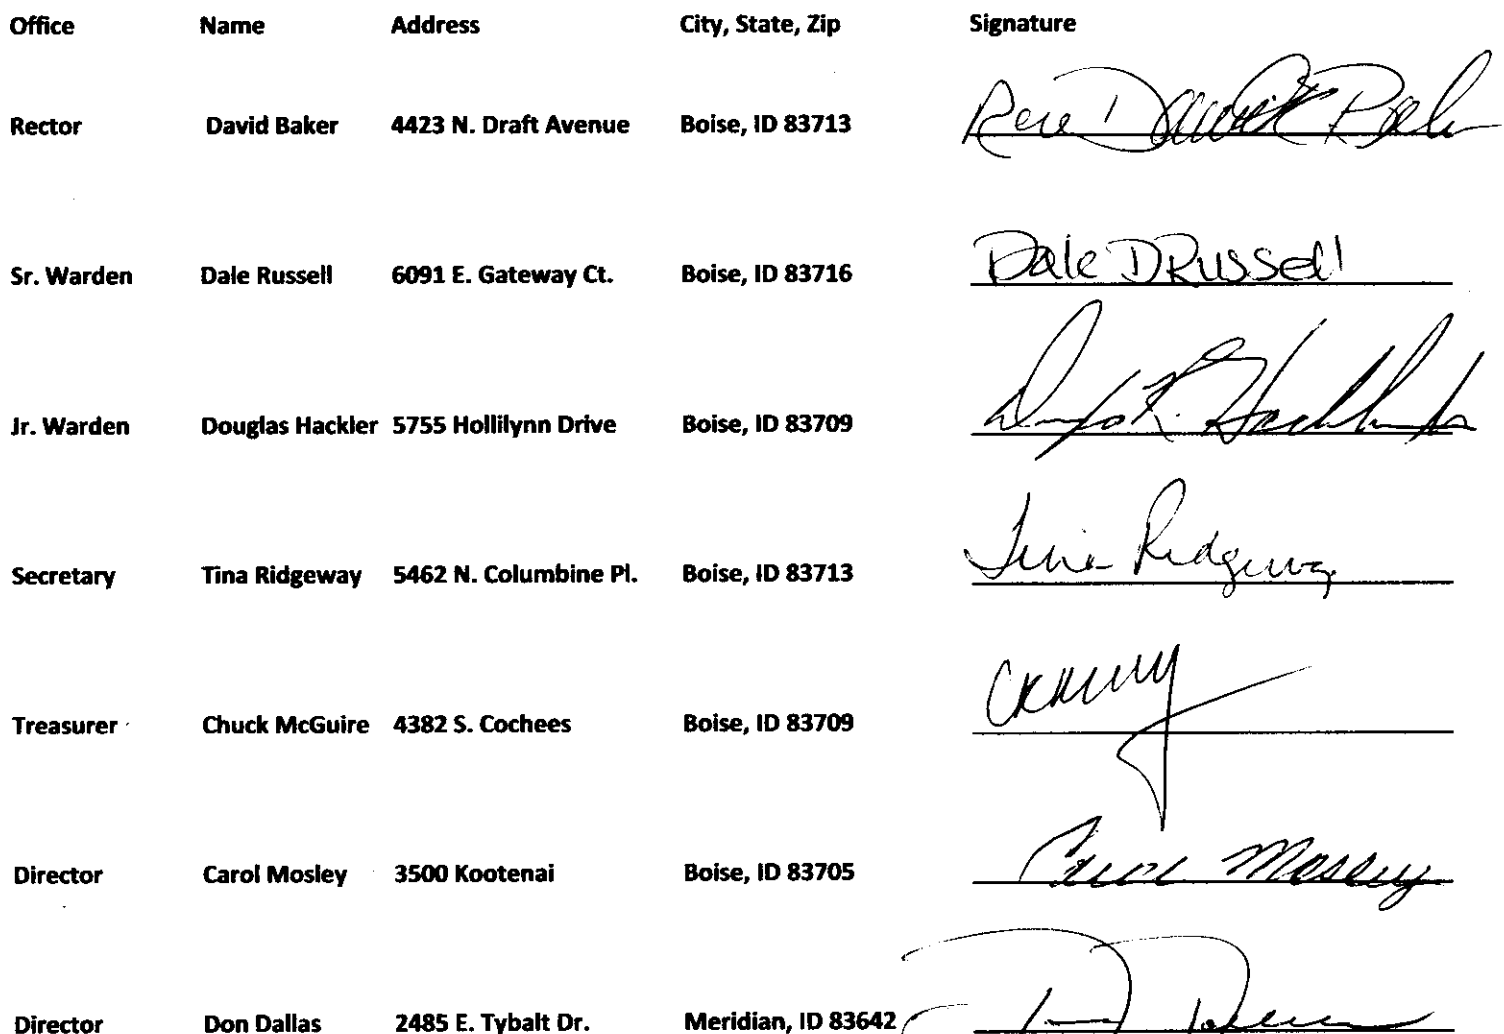 Office Name Address City, State, Zip Signature
Rector David Baker 4423 N. Draft Avenue Boise, ID 83713 David Bak
Sr. Warden Dale Russell 6091 E. Gateway Ct. Boise, ID 83716 Dale D Russell
Jr. Warden Douglas Hackler 5755 Hollilynn Drive Boise, ID 83709
Secretary Tina Ridgeway 5462 N. Columbine Pl. Boise, ID 83713 Tina Ridgeway
Treasurer Chuck McGuire 4382 S. Cochees Boise, ID 83709
Director Carol Mosley 3500 Kootenai Boise, ID 83705 Carol Mosley
Director Don Dallas 2485 E. Tybalt Dr. Meridian, ID 83642